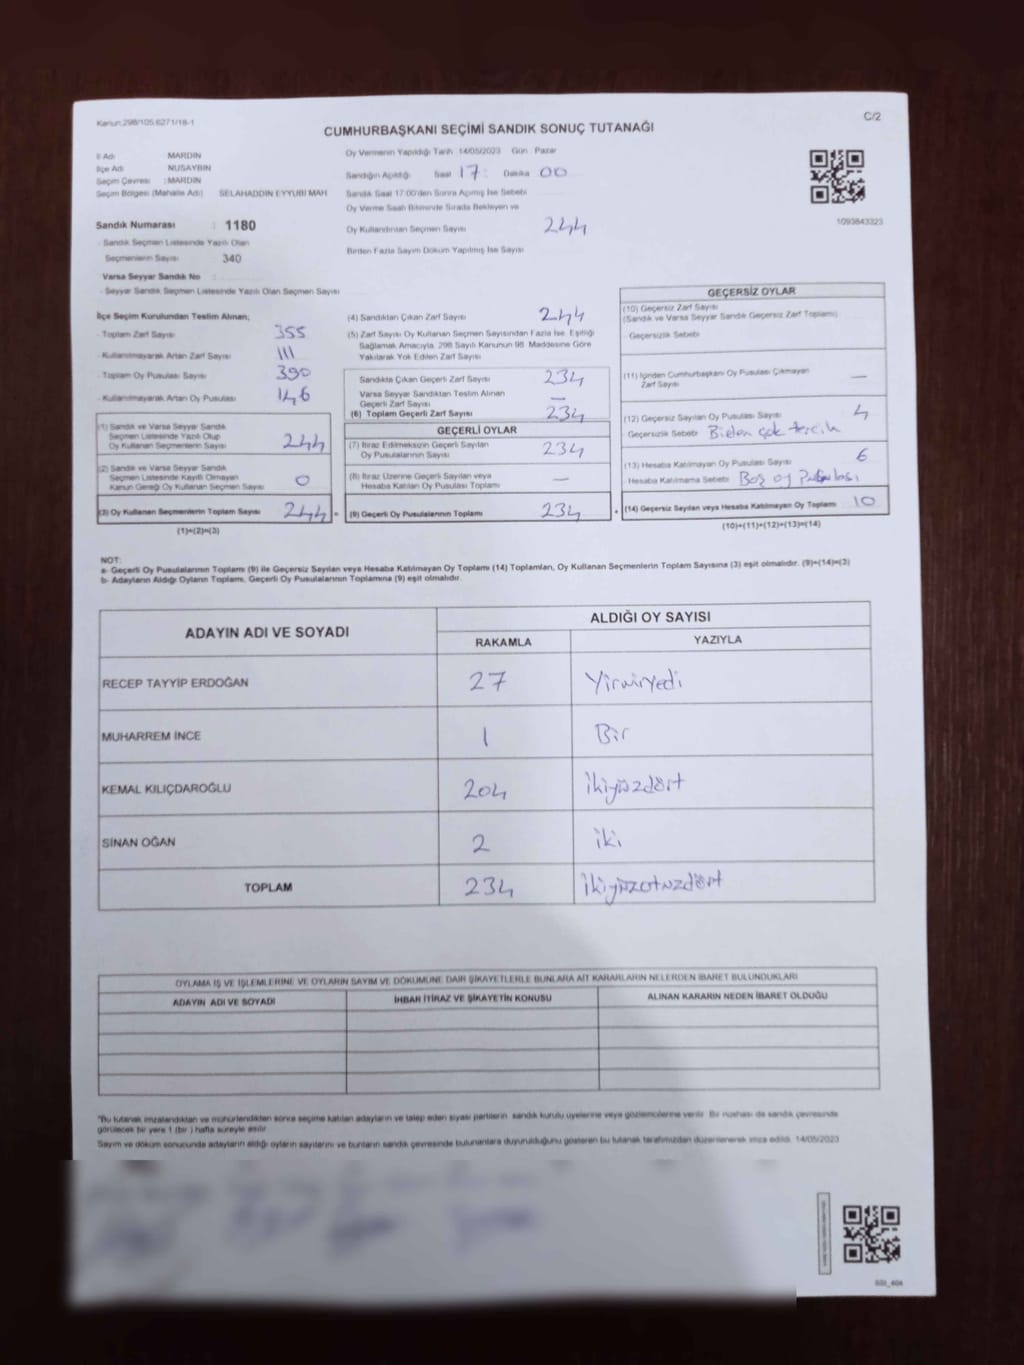 Kanun:298/105,6271/18-1
C/2
CUMHURBAŞKANI SEÇİMİ SANDIK SONUÇ TUTANAĞI
İl Adı MARDİN
İlçe Adı NUSAYBİN
Seçim Çevresi : MARDİN
Seçim Bölgesi (Mahalle Adı) SELAHADDİN EYYUBİ MAH.
Sandık Numarası : 1180
- Sandık Seçmen Listesinde Yazılı Olan
Seçmenlerin Sayısı 340
Varsa Seyyar Sandık No
- Seyyar Sandık Seçmen Listesinde Yazılı Olan Seçmen Sayısı
Oy Vermenin Yapıldığı Tarih 14/05/2023 Gün Pazar
Sandığın Açıldığı Saat 17: Dakika 00
Sandık Saat 17:00'den Sonra Açımış İse Sebebi
Oy Verme Saati Bitiminde Sırada Bekleyen ve
Oy Kullandırılan Seçmen Sayısı 244
Birden Fazla Sayım Döküm Yapılmış İse Sayısı
1093843323
İlçe Seçim Kurulundan Teslim Alınan;
- Toplam Zarf Sayısı 355
- Kullanılmayarak Artan Zarf Sayısı 111
- Toplam Oy Pusulası Sayısı 390
- Kullanılmayarak Artan Oy Pusulası 146
(1) Sandık ve Varsa Seyyar Sandık
Seçmen Listesinde Yazılı Olup
Oy Kullanan Seçmenlerin Sayısı 244
(2) Sandık ve Varsa Seyyar Sandık
Seçmen Listesinde Kayıtlı Olmayan
Kanun Gereği Oy Kullanan Seçmen Sayısı 0
(3) Oy Kullanan Seçmenlerin Toplam Sayısı 244 =
(1)+(2)=(3)
(4) Sandıktan Çıkan Zarf Sayısı 244
(5) Zarf Sayısı Oy Kullanan Seçmen Sayısından Fazla İse, Eşitliği
Sağlamak Amacıyla, 298 Sayılı Kanunun 98. Maddesine Göre
Yakılarak Yok Edilen Zarf Sayısı
Sandıkta Çıkan Geçerli Zarf Sayısı 234
Varsa Seyyar Sandıktan Teslim Alınan
Geçerli Zarf Sayısı —
(6) Toplam Geçerli Zarf Sayısı 234
GEÇERLİ OYLAR
(7) İtiraz Edilmeksizin Geçerli Sayılan
Oy Pusulalarının Sayısı 234
(8) İtiraz Üzerine Geçerli Sayılan veya
Hesaba Katılan Oy Pusulası Toplamı —
(9) Geçerli Oy Pusulalarının Toplamı 234 +
GEÇERSİZ OYLAR
(10) Geçersiz Zarf Sayısı
(Sandık ve Varsa Seyyar Sandık Geçersiz Zarf Toplamı)
- Geçersizlik Sebebi
(11) İçinden Cumhurbaşkanı Oy Pusulası Çıkmayan
Zarf Sayısı —
(12) Geçersiz Sayılan Oy Pusulası Sayısı 4
Geçersizlik Sebebi Birden çok tercih
(13) Hesaba Katılmayan Oy Pusulası Sayısı 6
- Hesaba Katılmama Sebebi Boş oy pusulası
(14) Geçersiz Sayılan veya Hesaba Katılmayan Oy Toplamı 10
(10)+(11)+(12)+(13)=(14)
NOT:
a- Geçerli Oy Pusulalarının Toplamı (9) ile Geçersiz Sayılan veya Hesaba Katılmayan Oy Toplamı (14) Toplamları, Oy Kullanan Seçmenlerin Toplam Sayısına (3) eşit olmalıdır. (9)+(14)=(3)
b- Adayların Aldığı Oyların Toplamı, Geçerli Oy Pusulalarının Toplamına (9) eşit olmalıdır.
ADAYIN ADI VE SOYADI ALDIĞI OY SAYISI
RAKAMLA YAZIYLA
RECEP TAYYİP ERDOĞAN 27 Yirmiyedi
MUHARREM İNCE 1 Bir
KEMAL KILIÇDAROĞLU 204 ikiyüzdört
SİNAN OĞAN 2 iki
TOPLAM 234 ikiyüzotuzdört
OYLAMA İŞ VE İŞLEMLERİNE VE OYLARIN SAYIM VE DÖKÜMÜNE DAİR ŞİKAYETLERLE BUNLARA AİT KARARLARIN NELERDEN İBARET BULUNDUKLARI
ADAYIN ADI VE SOYADI İHBAR İTİRAZ VE ŞİKAYETİN KONUSU ALINAN KARARIN NEDEN İBARET OLDUĞU
*Bu tutanak imzalandıktan ve mühürlendikten sonra seçime katılan adayların ve talep eden siyasi partilerin sandık kurulu üyelerine veya gözlemcilerine verilir. Bir nüshası da sandık çevresinde
görülecek bir yere 1 (bir ) hafta süreyle asılır.
Sayım ve döküm sonucunda adayların aldığı oyların sayılarını ve bunların sandık çevresinde bulunanlara duyurulduğunu gösteren bu tutanak tarafımızdan düzenlenerek imza edildi. 14/05/2023